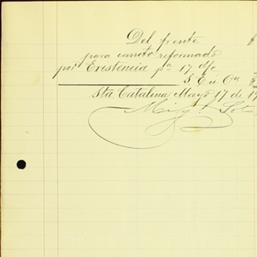 Del frente
para carrito reformado
por Existencia pa. 17 dfe
S. E. u O.
Sta Catalina Mayo 17 de 19
Mig.l Sot